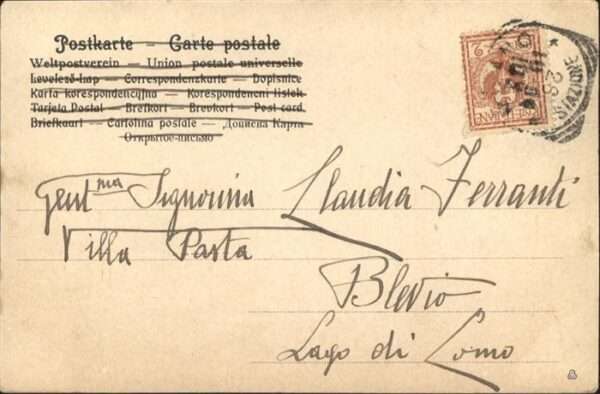 Postkarte – Carte postale
Weltpostverein – Union postale universelle
Levelező-lap – Correspondenzkarte – Dopisnice
Karta korespondencyjna – Korespondencni listek
Tarjeta Postal – Brefkort – Brevkort – Post card.
Briefkaart – Cartolina postale – Дописна Карта
Открытое-письмо
STAZIONE
Gent.ma Signorina Claudia Ferranti
Villa Pasta
Blevio
Lago di Como